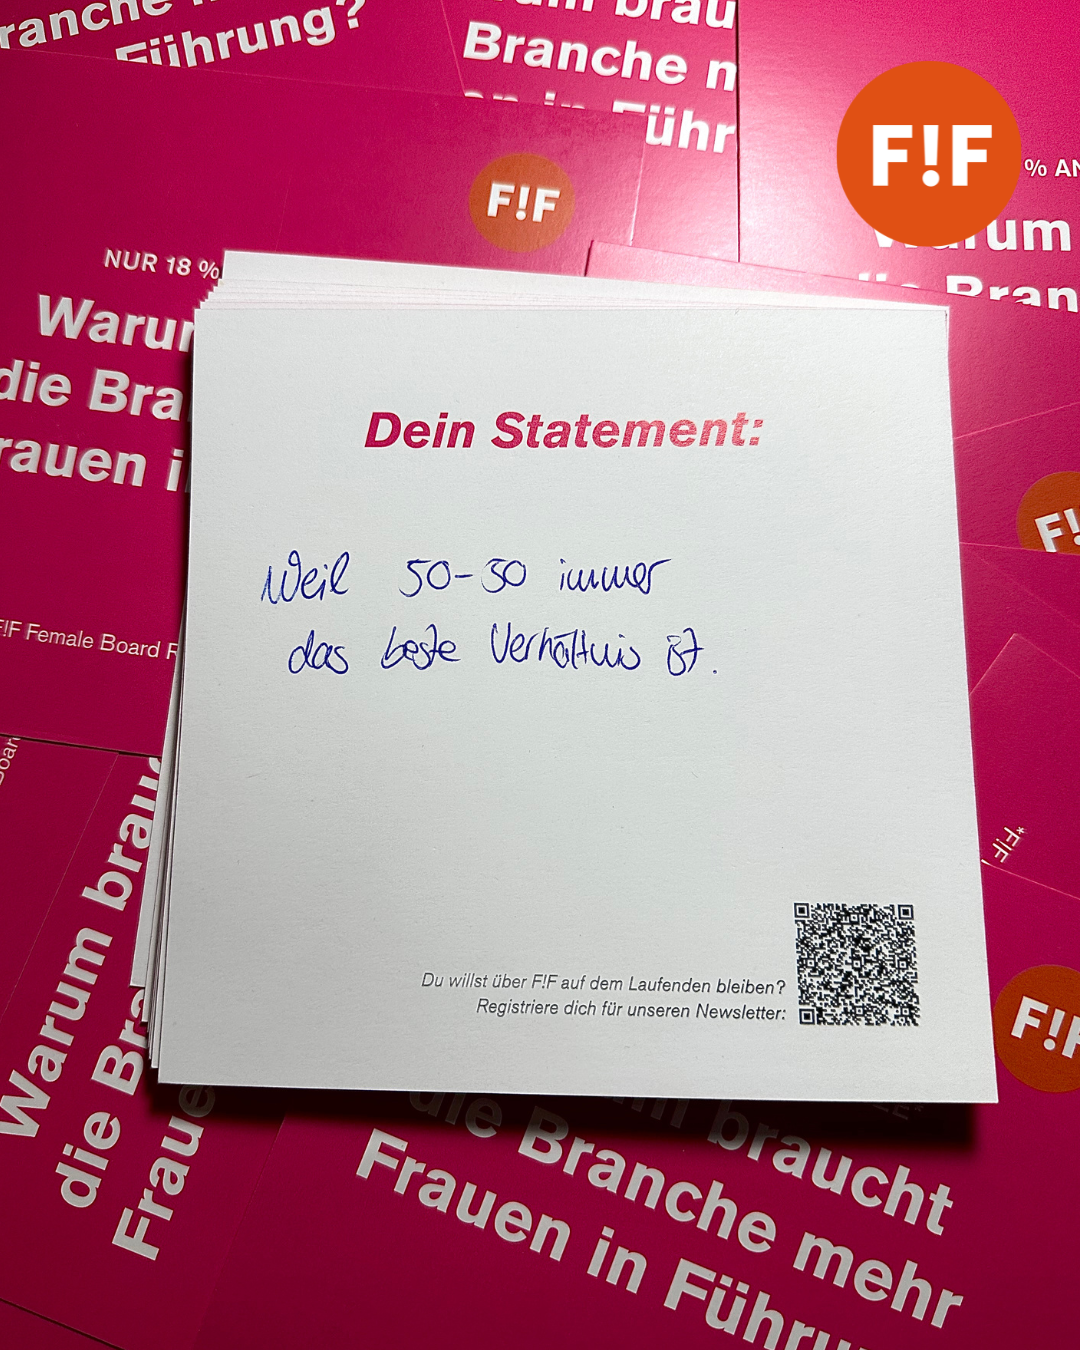 ranche m
Führung?
um brau
Branche m
en in Führ
F!F
% AN
Warum
die Bran
F!F
NUR 18 %
Warum
die Bra
rauen i
F!F Female Board R
Dein Statement:
Weil 50-50 immer
das beste Verhältnis ist.
Du willst über F!F auf dem Laufenden bleiben?
Registriere dich für unseren Newsletter:
F!
*F!F
F!F
Board
Warum brauc
die Bra
Fraue
um braucht
die Branche mehr
Frauen in Führu